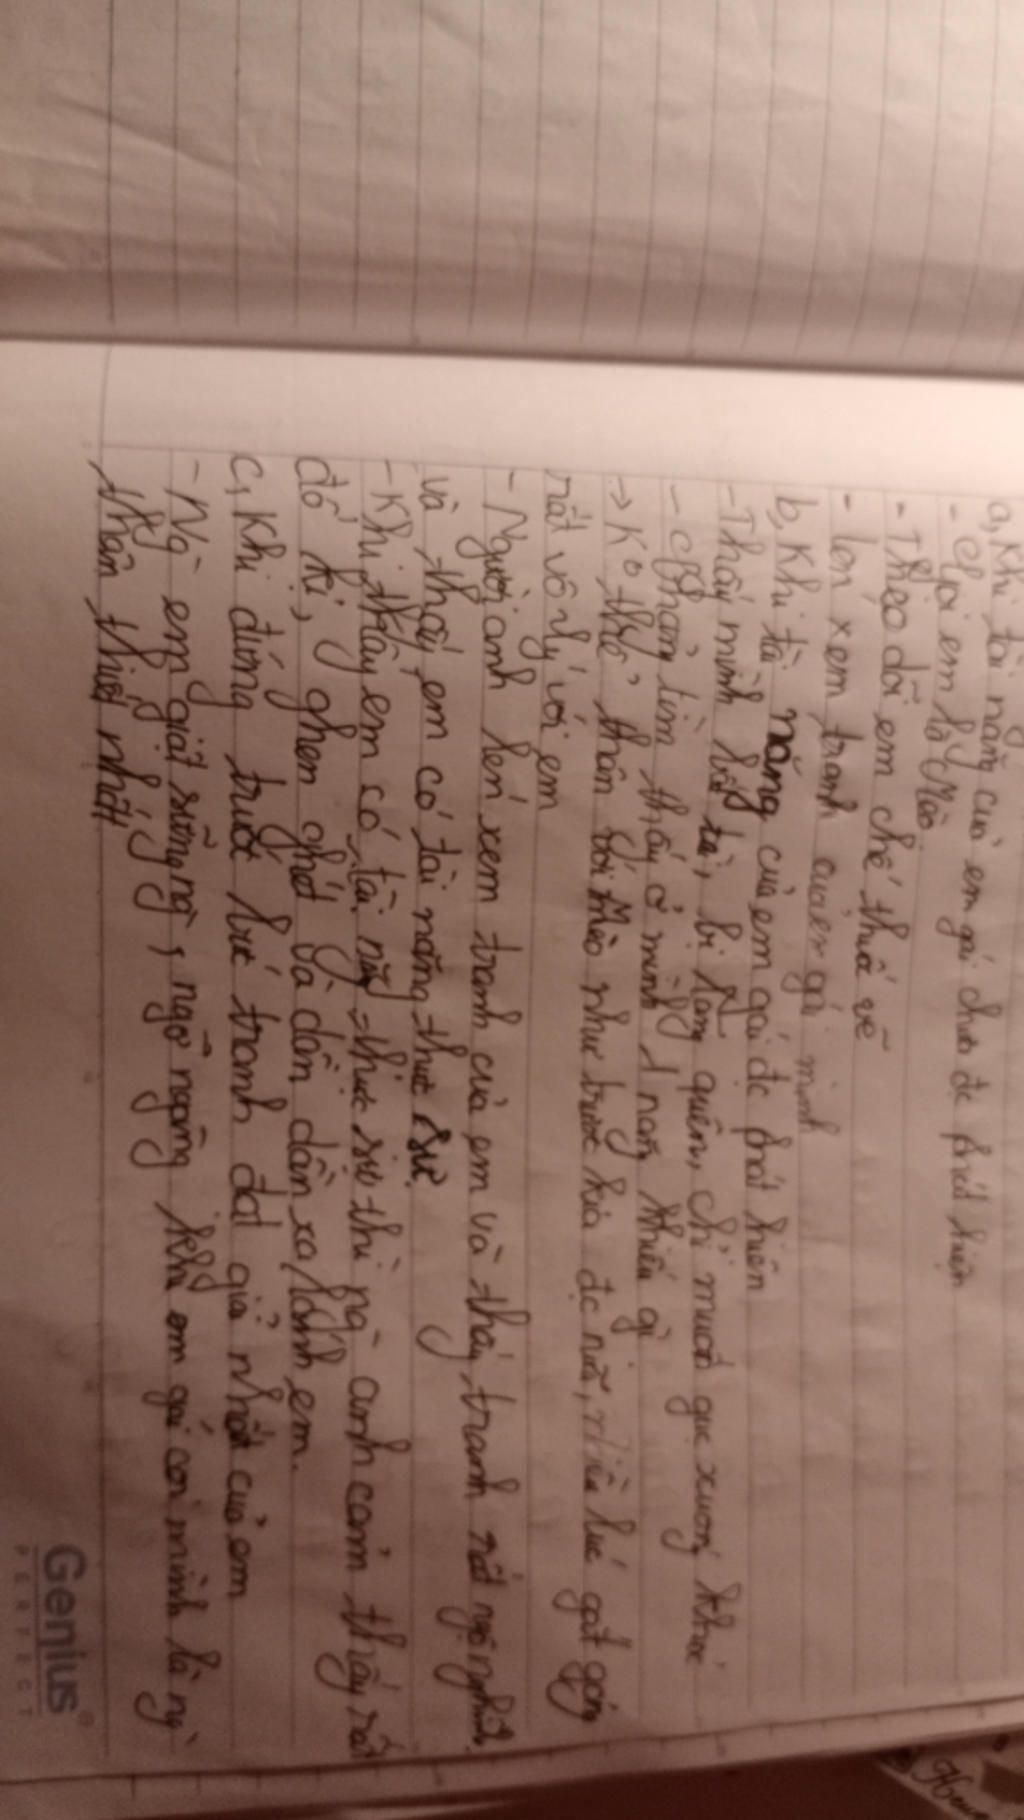 a, Khi tài năng của em gái chưa đc phát hiện
- Gọi em là Mèo
- Theo dõi em chế thuốc vẽ
- lén xem tranh của em gái mình
b, Khi tài năng của em gái đc phát hiện
- Thấy mình bất tài, bị lãng quên, chỉ muốn gục xuống khóc
- Chẳng tìm thấy ở mình 1 năng khiếu gì
-> Ko thể thân với Mèo như trước kia đc nữa, nhiều lúc gắt gỏng
rất vô lý với em
- Người anh lén xem tranh của em và thấy tranh rất ngộ nghĩnh
và thấy em có tài năng thực sự.
- Khi thấy em có tài năng thực sự thì ng anh cảm thấy rất
đố kị, ghen ghét và dần dần xa lánh em.
c, Khi đứng trước bức tranh đạt giải nhất của em
- Ng em giật sững ng, ngỡ ngàng khi em gái coi mình là ng
thân thiết nhất
Genius
PERFECT